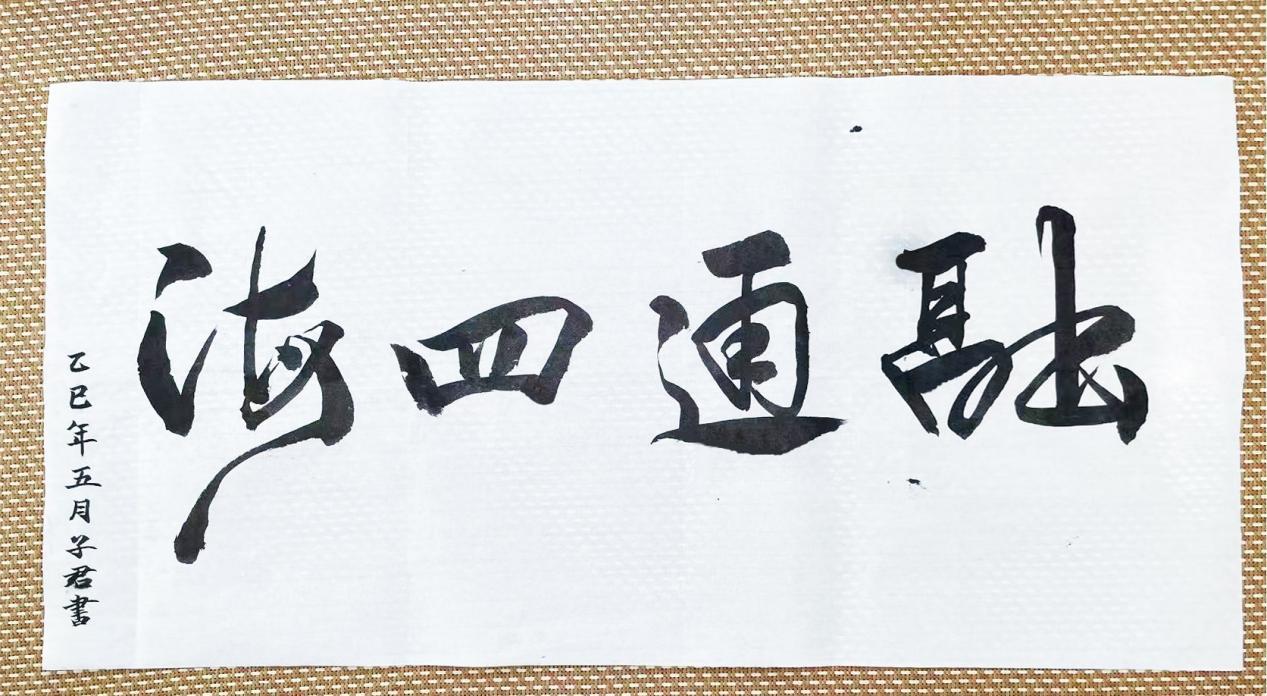 融通四海
乙巳年五月子君書